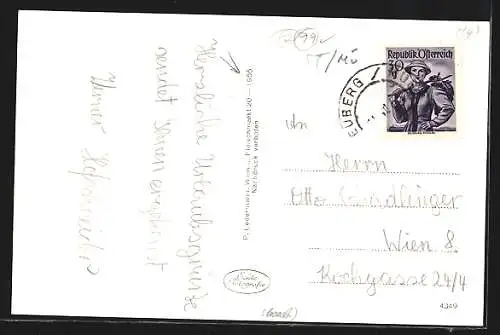 Herzliche Urlaubsgrüsse
sendet Ihnen ergebenst
Ihner
P. Ledermann, Wien I., Fleischmarkt 20 — 1955
Nachdruck verboten
Echte
4349
EUBERG
Republik Österreich
30
An
Herrn
Otto
Wien 8.
Kochgasse 24/4